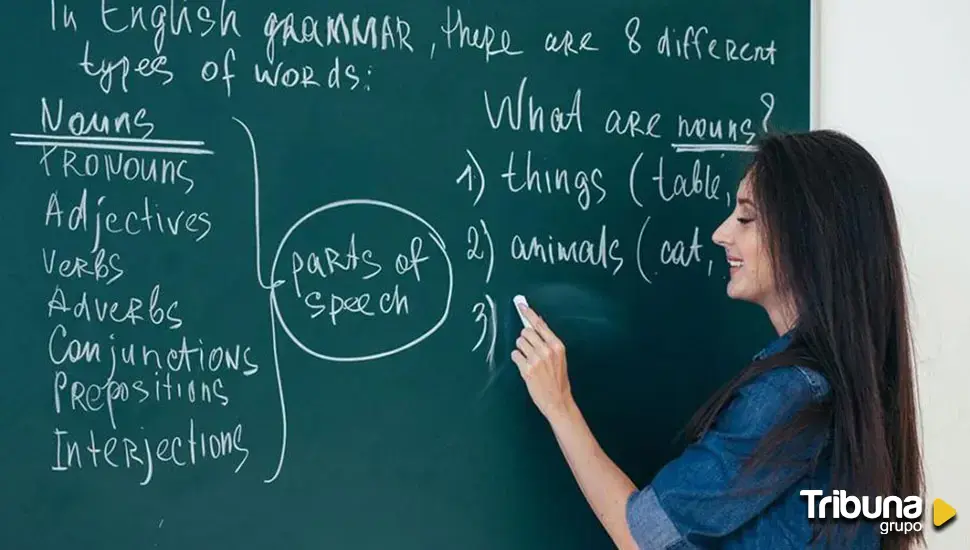 In English grammar, there are 8 different
types of words:
Nouns
Pronouns
Adjectives
Verbs
Adverbs
Conjunctions
Prepositions
Interjections
parts of
speech
What are nouns?
1) things (table,
2) animals (cat,
3)
Tribuna
grupo